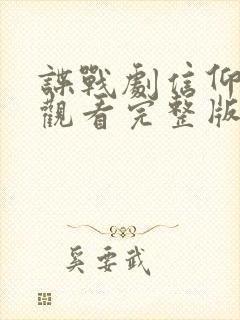 諜戰劇信仰
觀看完整版
奚要武